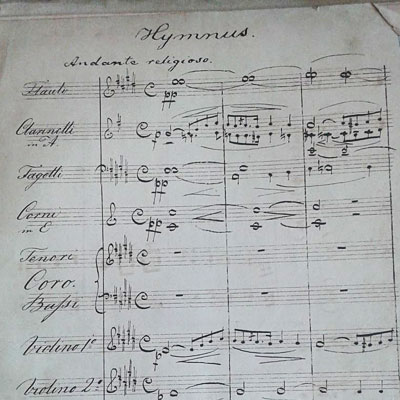 Hymnus.
Andante religioso.
Flauto
pp
Clarinetti
in A
pp
Fagotti
pp
Corni
in E
pp
Tenori
Coro.
Bassi
Violino 1º
pp
Violino 2º
pp